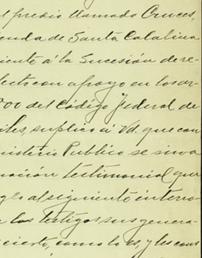 el predio llamado Cruces,
enda de Santa Catalina
iente á la Sucesión de re-
fecto con apoyo en los ar-
300 del Código Federal de
les, suplico á Vd. que con
nisterio Público se sirva
mación testimonial que
glo al siguiente interro
los testigos sus genera-
cierto, como lo es, y les cons